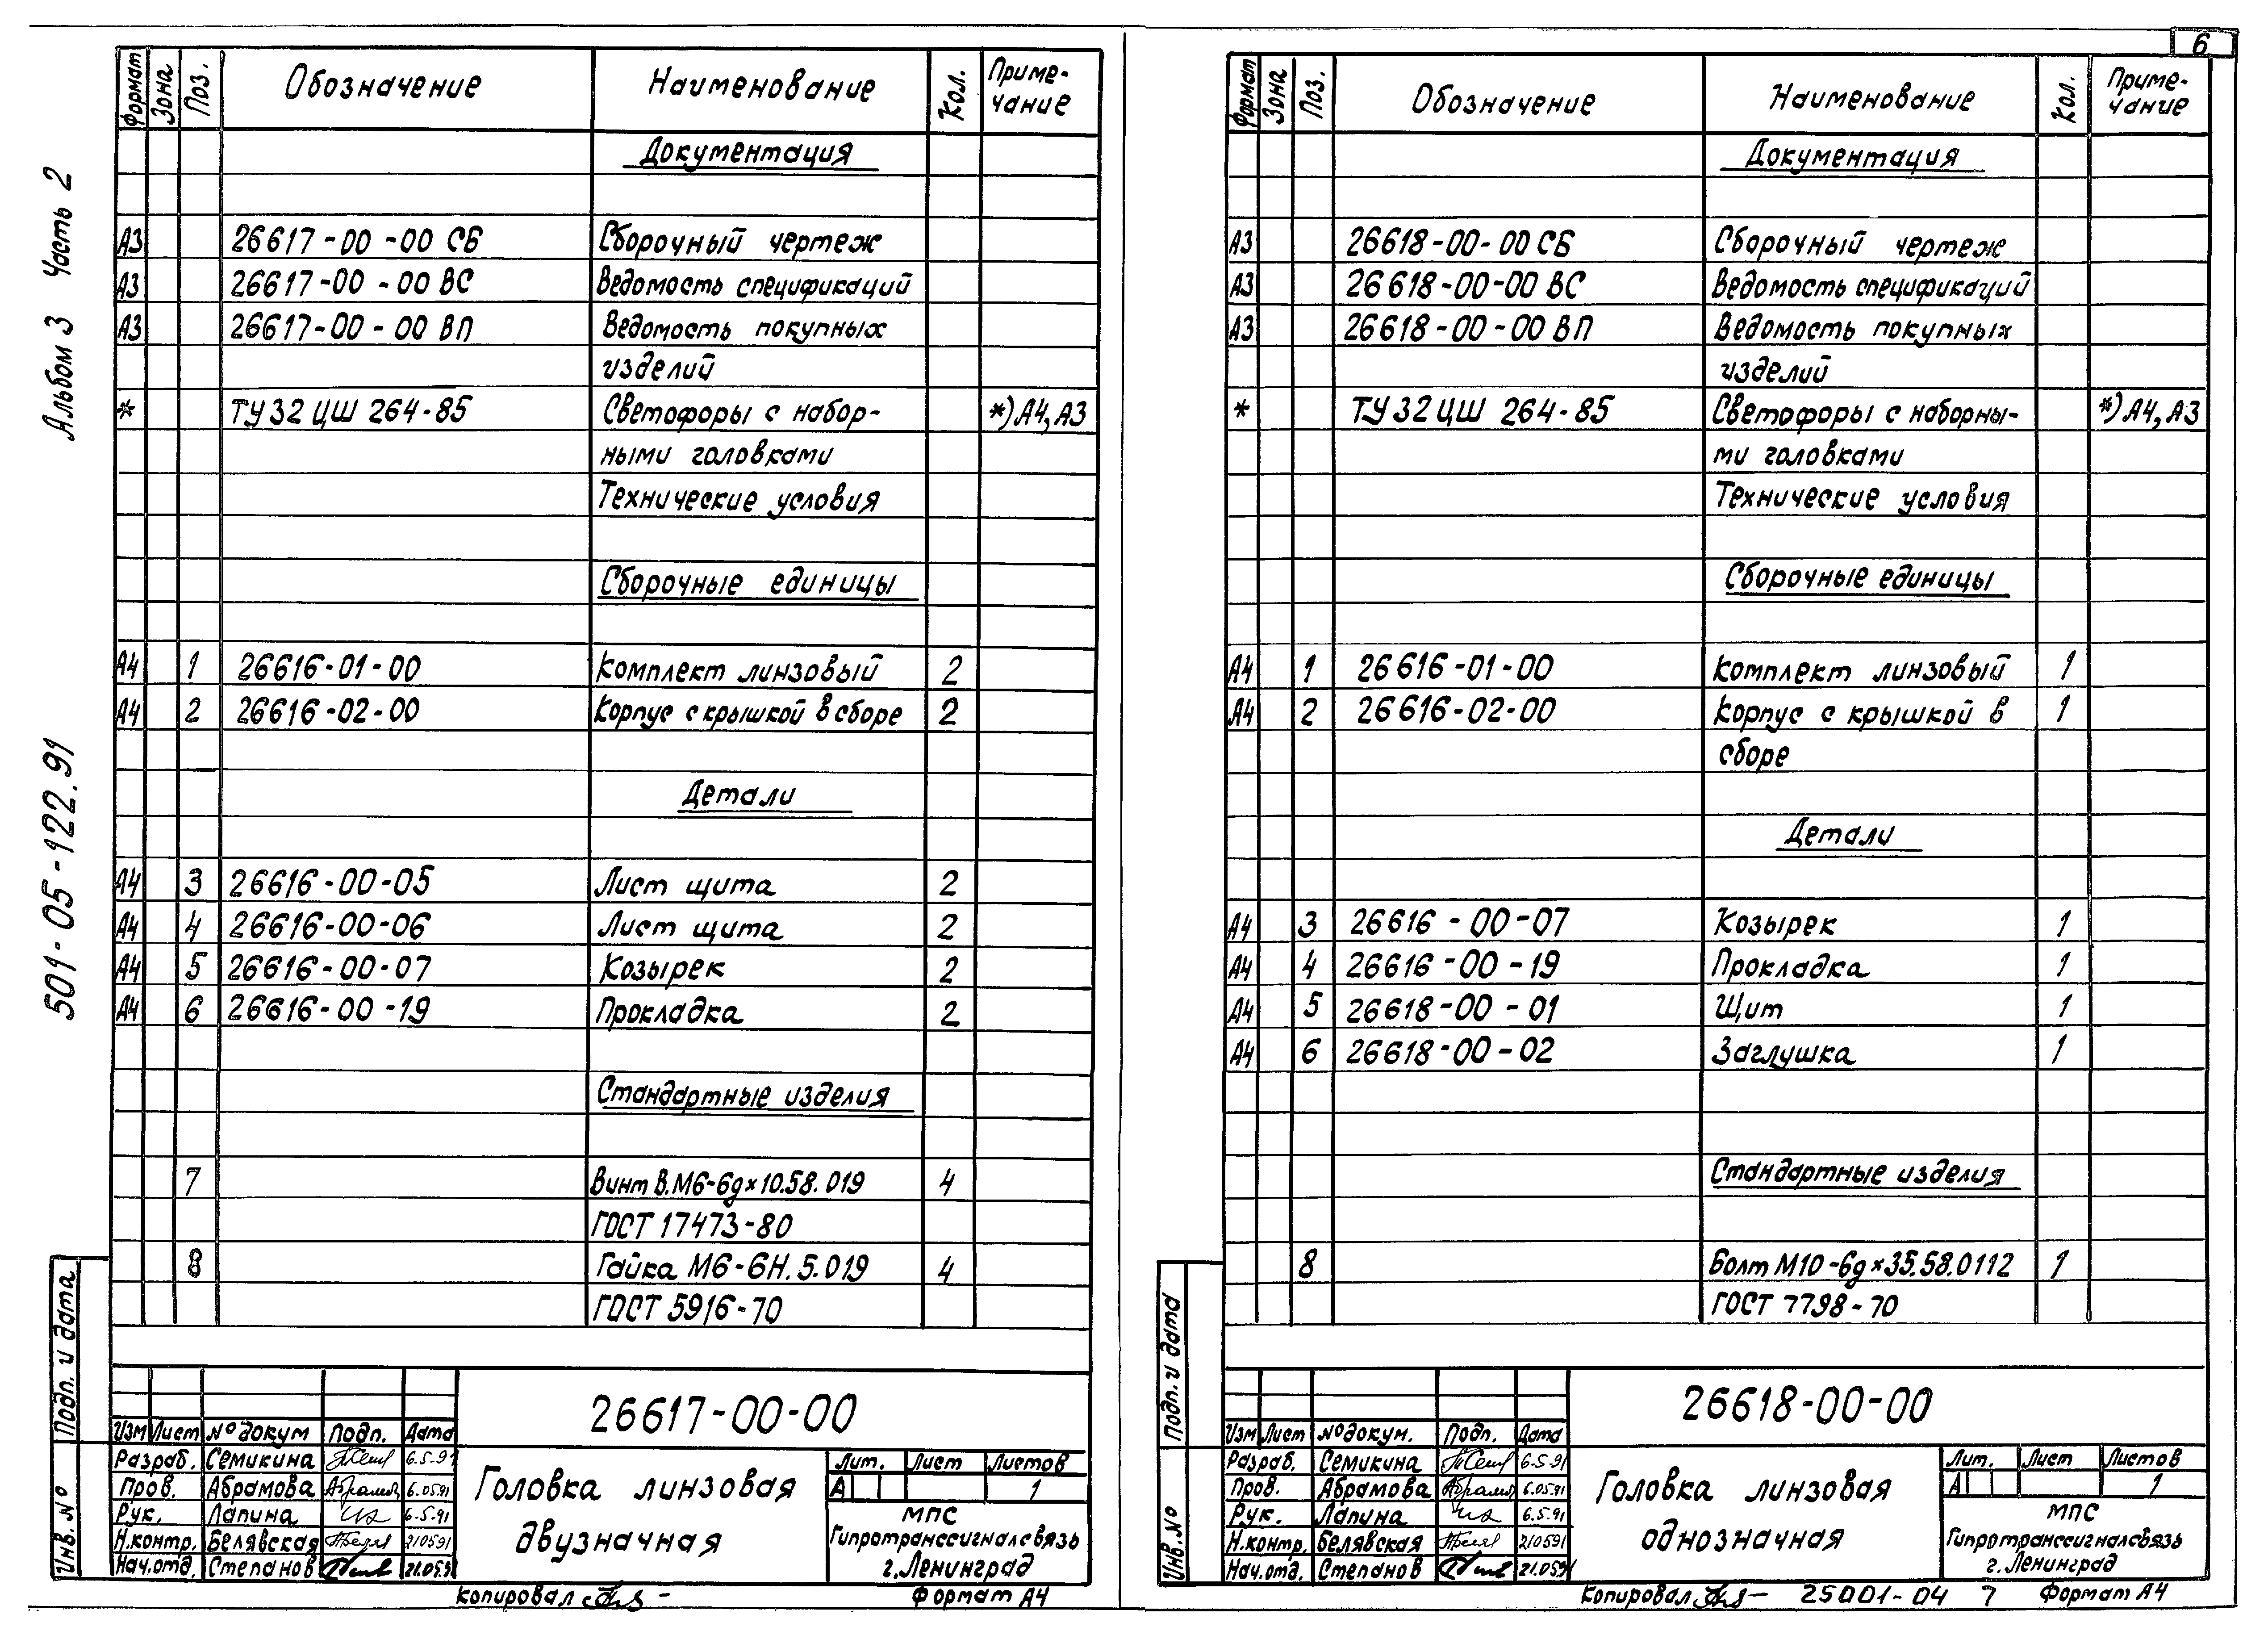 6
Альбом 3 Часть 2
501-05-122.91
Формат Зона Поз. Обозначение Наименование Кол. Приме-
чание
Документация
А3 26617-00-00 СБ Сборочный чертеж
А3 26617-00-00 ВС Ведомость спецификаций
А3 26617-00-00 ВП Ведомость покупных
изделий
* ТУ 32 ЦШ 264-85 Светофоры с набор- *) А4, А3
ными головками
Технические условия
Сборочные единицы
А4 1 26616-01-00 Комплект линзовый 2
А4 2 26616-02-00 Корпус с крышкой в сборе 2
Детали
А4 3 26616-00-05 Лист щита 2
А4 4 26616-00-06 Лист щита 2
А4 5 26616-00-07 Козырек 2
А4 6 26616-00-19 Прокладка 2
Стандартные изделия
7 Винт В.М6-6g×10.58.019 4
ГОСТ 17473-80
8 Гайка М6-6Н.5.019 4
ГОСТ 5916-70
Подп. и дата
Инв. №
26617-00-00
Изм Лист № докум Подп. Дата
Разраб. Семикина 6.5.91
Пров. Абрамова 6.05.91
Рук. Лапина 6.5.91
Н.контр. Белявская 210591
Нач.отд. Степанов 21.05.91
Головка линзовая
двузначная
Лит. Лист Листов
А 1
МПС
Гипротранссигналсвязь
г. Ленинград
Копировал Формат А4
Формат Зона Поз. Обозначение Наименование Кол. Приме-
чание
Документация
А3 26618-00-00 СБ Сборочный чертеж
А3 26618-00-00 ВС Ведомость спецификаций
А3 26618-00-00 ВП Ведомость покупных
изделий
* ТУ 32 ЦШ 264-85 Светофоры с наборны- *) А4, А3
ми головками
Технические условия
Сборочные единицы
А4 1 26616-01-00 Комплект линзовый 1
А4 2 26616-02-00 Корпус с крышкой в 1
сборе
Детали
А4 3 26616-00-07 Козырек 1
А4 4 26616-00-19 Прокладка 1
А4 5 26618-00-01 Щит 1
А4 6 26618-00-02 Заглушка 1
Стандартные изделия
8 Болт М10-6g×35.58.0112 1
ГОСТ 7798-70
Подп. и дата
Инв. №
26618-00-00
Изм Лист № докум. Подп. Дата
Разраб. Семикина 6.5.91
Пров. Абрамова 6.05.91
Рук. Лапина 6.5.91
Н.контр. Белявская 210591
Нач.отд. Степанов 21.0591
Головка линзовая
однозначная
Лит. Лист Листов
А 1
МПС
Гипротранссигналсвязь
г. Ленинград
Копировал 25001-04 7 Формат А4